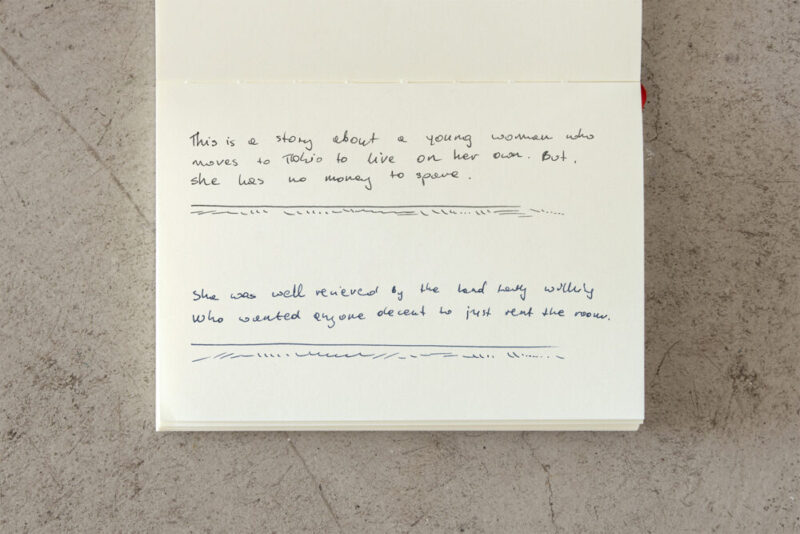 This is a story about a young woman who
moves to Tokio to live on her own. But,
she has no money to spare.
She was well by the land lady
who wanted anyone decent to just rent the room.